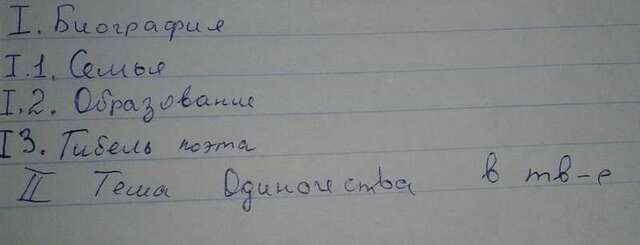 I. Биография
I.1. Семья
I.2. Образование
I3. Гибель поэта
II Тема Одиночества в тв-е